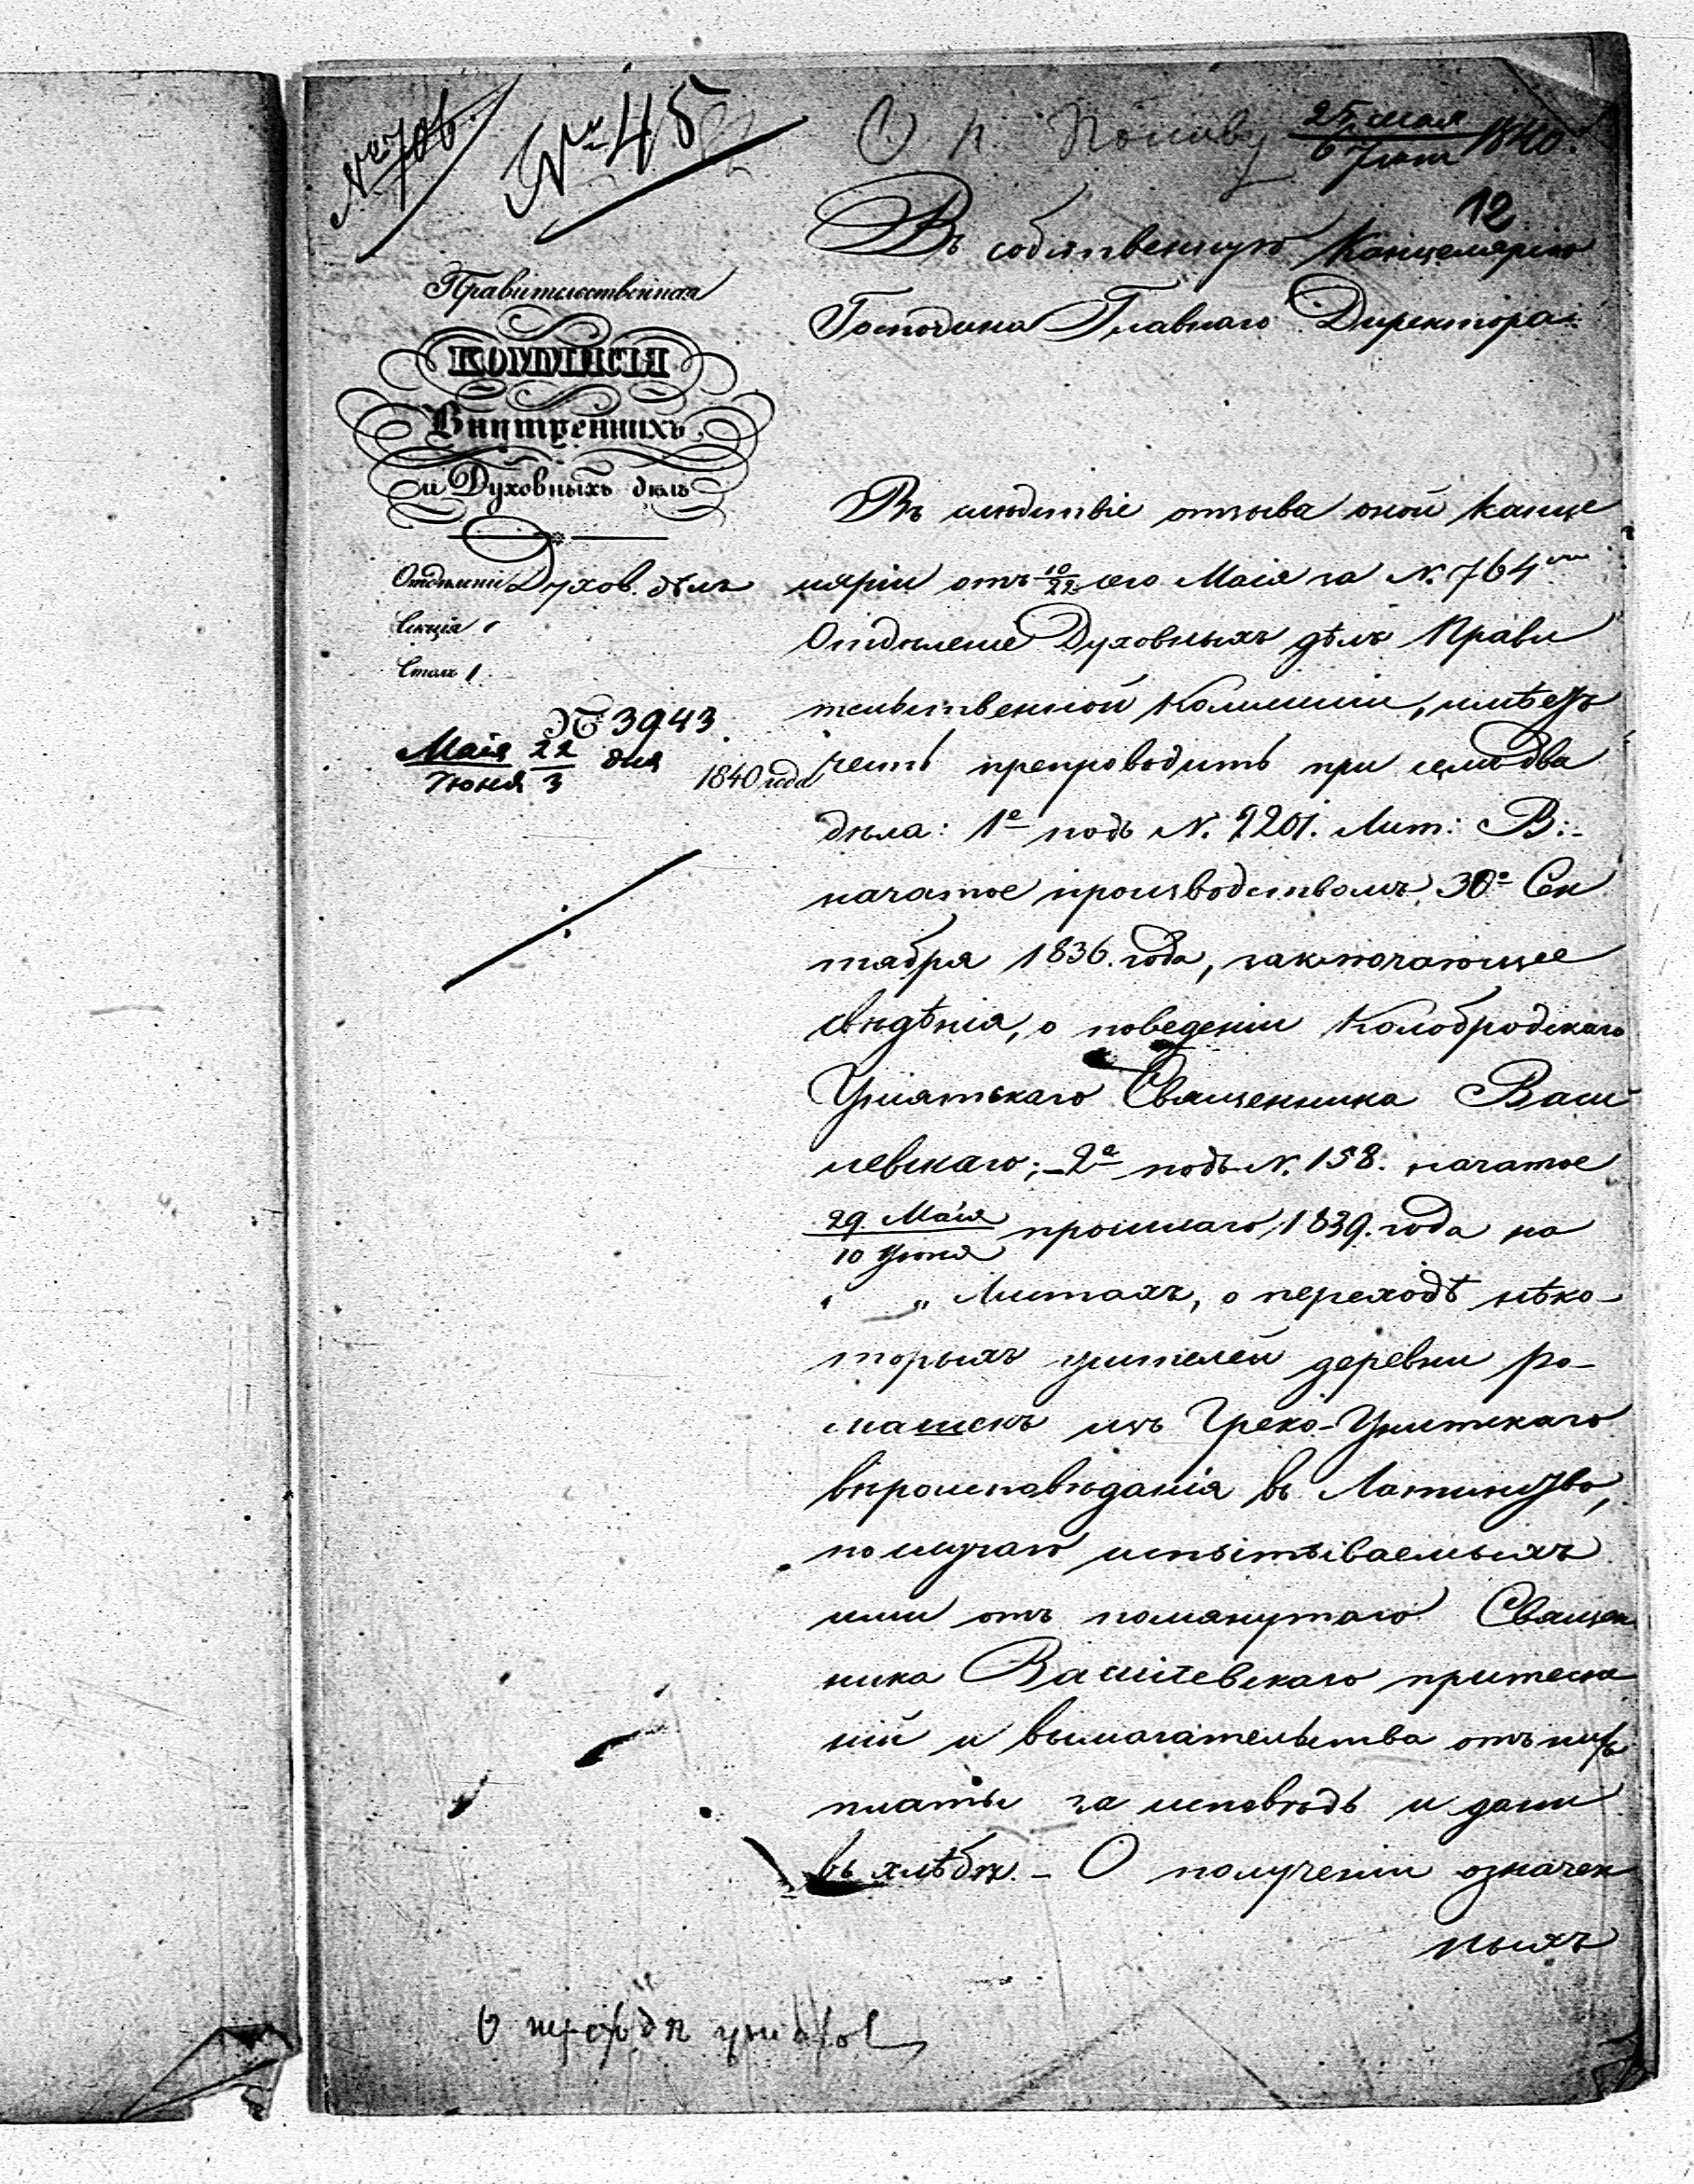 № 706
№ 45
25 мая
6 Іюня 1840.
12
Въ собственную Канцелярію
Господина Главнаго Директора.
Правительственная
КОММИСІЯ
Внутреннихъ
и Духовныхъ дѣлъ
Отдѣленіе Духов. дѣлъ
Секція
Столъ 1
№ 3943.
Маія 22 дня
Іюня 3
1840 года
Въ слѣдствіе отзыва оной Канце
ляріи отъ 10/22 сего Маія за N. 764
Отдѣленіе Духовныхъ дѣлъ Прави
тельственной Коммисіи, имѣетъ
честь препроводить при семъ два
дѣла: 1е подъ N. 2201. Лит: В:-
начатое производствомъ 30е Сен
тября 1836. года, заключающее
свѣдѣнія, о поведеніи Колобродскаго
Уніятскаго Священника Васи
левскаго; - 2е подъ N. 158. начатое
29 Маія
10 Іюня прошлаго 1839. года на
" " Листахъ, о переходѣ нѣко-
торыхъ жителей деревни Ро-
машекъ изъ Греко-Унитскаго
вѣроисповѣданія въ Латинство,
по случаю испытываемыхъ
ими отъ помянутаго Священ
ника Василевскаго притесне
ній и вымагательства отъ нихъ
платы за исповѣдь и дани
въ хлѣбѣ. - О полученіи означен
ныхъ
О переходѣ уніатов